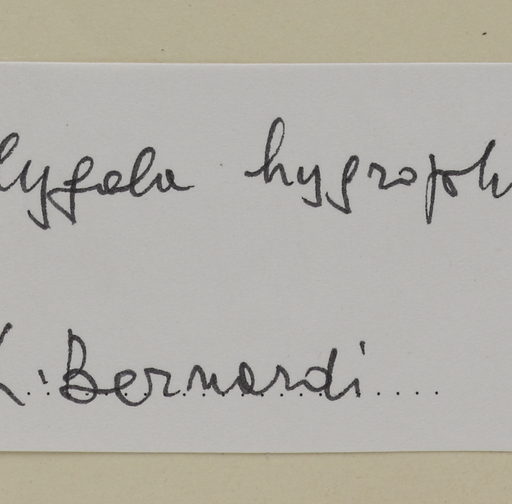 lygala hygroph
L. Bernardi